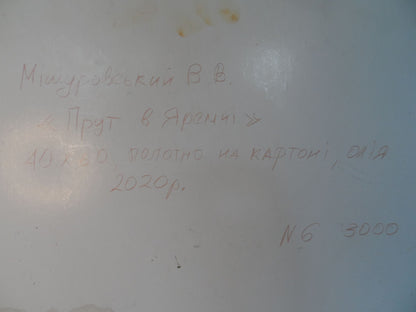 Мішуровський В В.
« Прут в Яремчі »
40х30 полотно на картоні, олія
2020р.
№6 3000